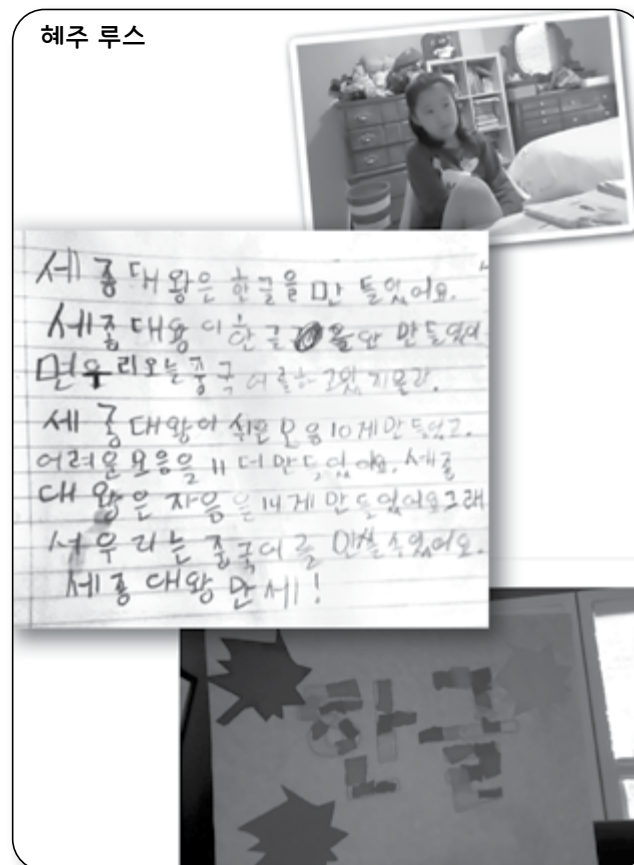 혜주 루스
세종대왕은 한글을 만 들었어요.
세종대용이 한글을 안 만들었어
면우리오는 중국어를하고있지몰라.
세종대왕이 쉬운 모음 10게만들었고.
어려운모음을 11 더만드었어요. 세종
대왕은 자음은 14게만들었어요그래
서우리는 중국어를 안쓸수있어요.
세종대왕 만세!
한글